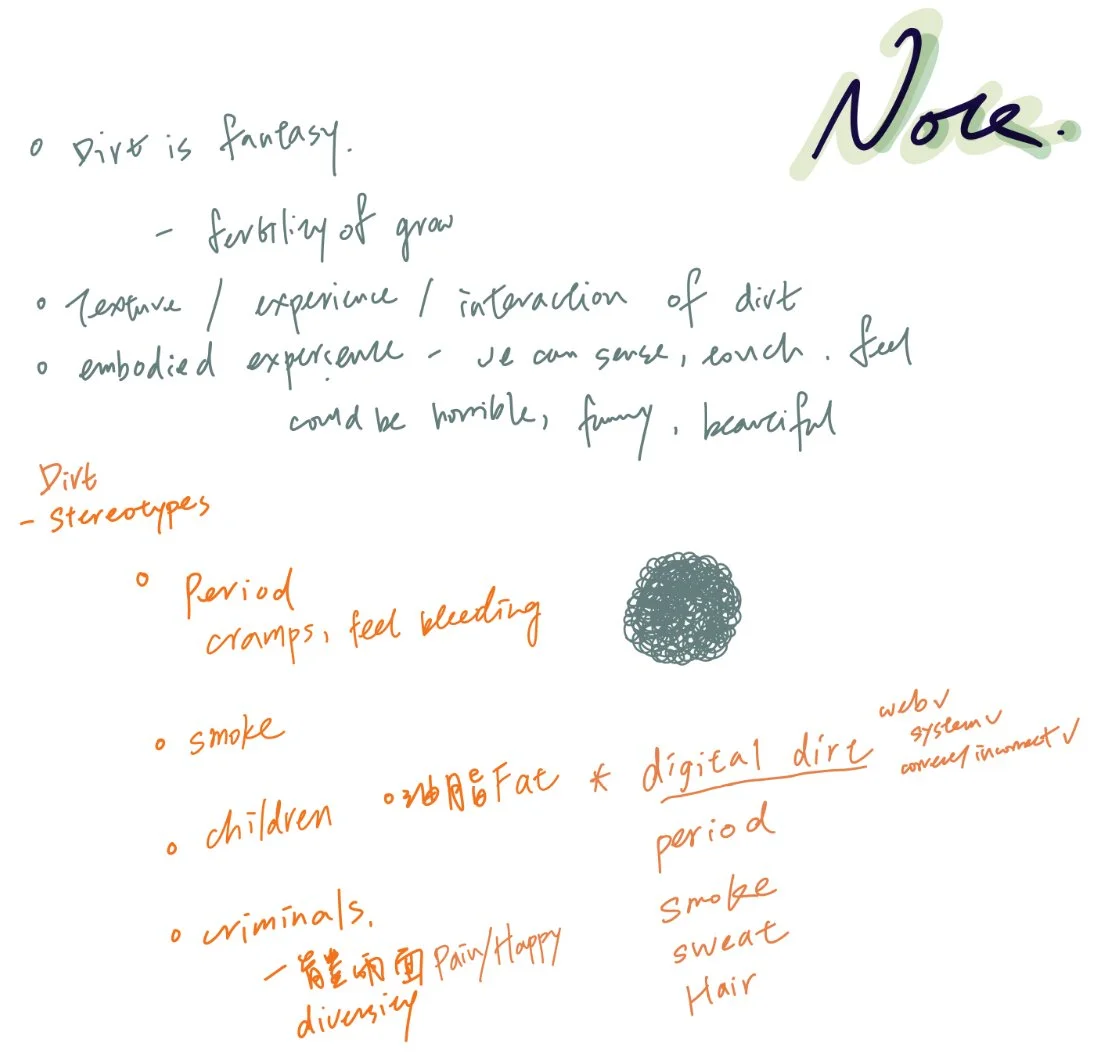 Note.
Dirt is fantasy.
- fertility of grow
Texture / experience / interaction of dirt
embodied experience - we can sense, touch. feel
could be horrible, funny, beautiful
Dirt
- Stereotypes
Period
cramps, feel bleeding
smoke
children
油脂 Fat
criminals.
- 兩面 Pain/Happy
diversity
* digital dirt
web ✓
system ✓
correct/incorrect ✓
period
smoke
sweat
Hair